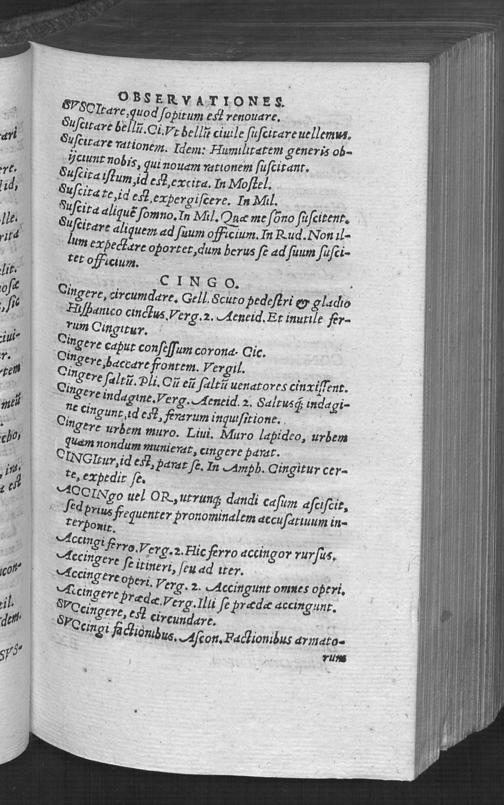 OBSERVATIONES.
SVSCItare, quod sopitum est renouare.
Suscitare bellũ. Ci. Vt bellũ ciuile suscitare uellemus.
Suscitare rationem. Idem: Humilitatem generis ob-
ijciunt nobis, qui nouam rationem suscitant.
Suscita istum, id est, excita. In Mostel.
Suscita te, id est, expergiscere. In Mil.
Suscita aliquẽ somno. In Mil. Quæ me sõno suscitent.
Suscitare aliquem ad suum officium. In Rud. Non il-
lum expectare oportet, dum herus se ad suum susci-
tet officium.
CINGO.
Cingere, circumdare. Gell. Scuto pedestri & gladio
Hispanico cinctus. Verg. 2. Aeneid. Et inutile fer-
rum Cingitur.
Cingere caput consessum corona. Cic.
Cingere, baccare frontem. Vergil.
Cingere saltũ. Pli. Cũ eũ saltũ uenatores cinxissent.
Cingere indagine. Verg. Aeneid. 2. Saltusq; indagi-
ne cingunt, id est, ferarum inquisitione.
Cingere urbem muro. Liui. Muro lapideo, urbem
quam nondum munierat, cingere parat.
CINGItur, id est, parat se. In Amph. Cingitur cer-
te, expedit se.
ACCINgo uel OR, utrunq; dandi casum asciscit,
sed prius frequenter pronominalem accusatiuum in-
terponit.
Accingi ferro. Verg. 2. Hic ferro accingor rursus.
Accingere se itineri, seu ad iter.
Accingere operi. Verg. 2. Accingunt omnes operi.
Accingere prædæ. Verg. Illi se prædæ accingunt.
SVCcingere, est circundare.
SVCcingi factionibus. Ascon. Factionibus armato-
rum